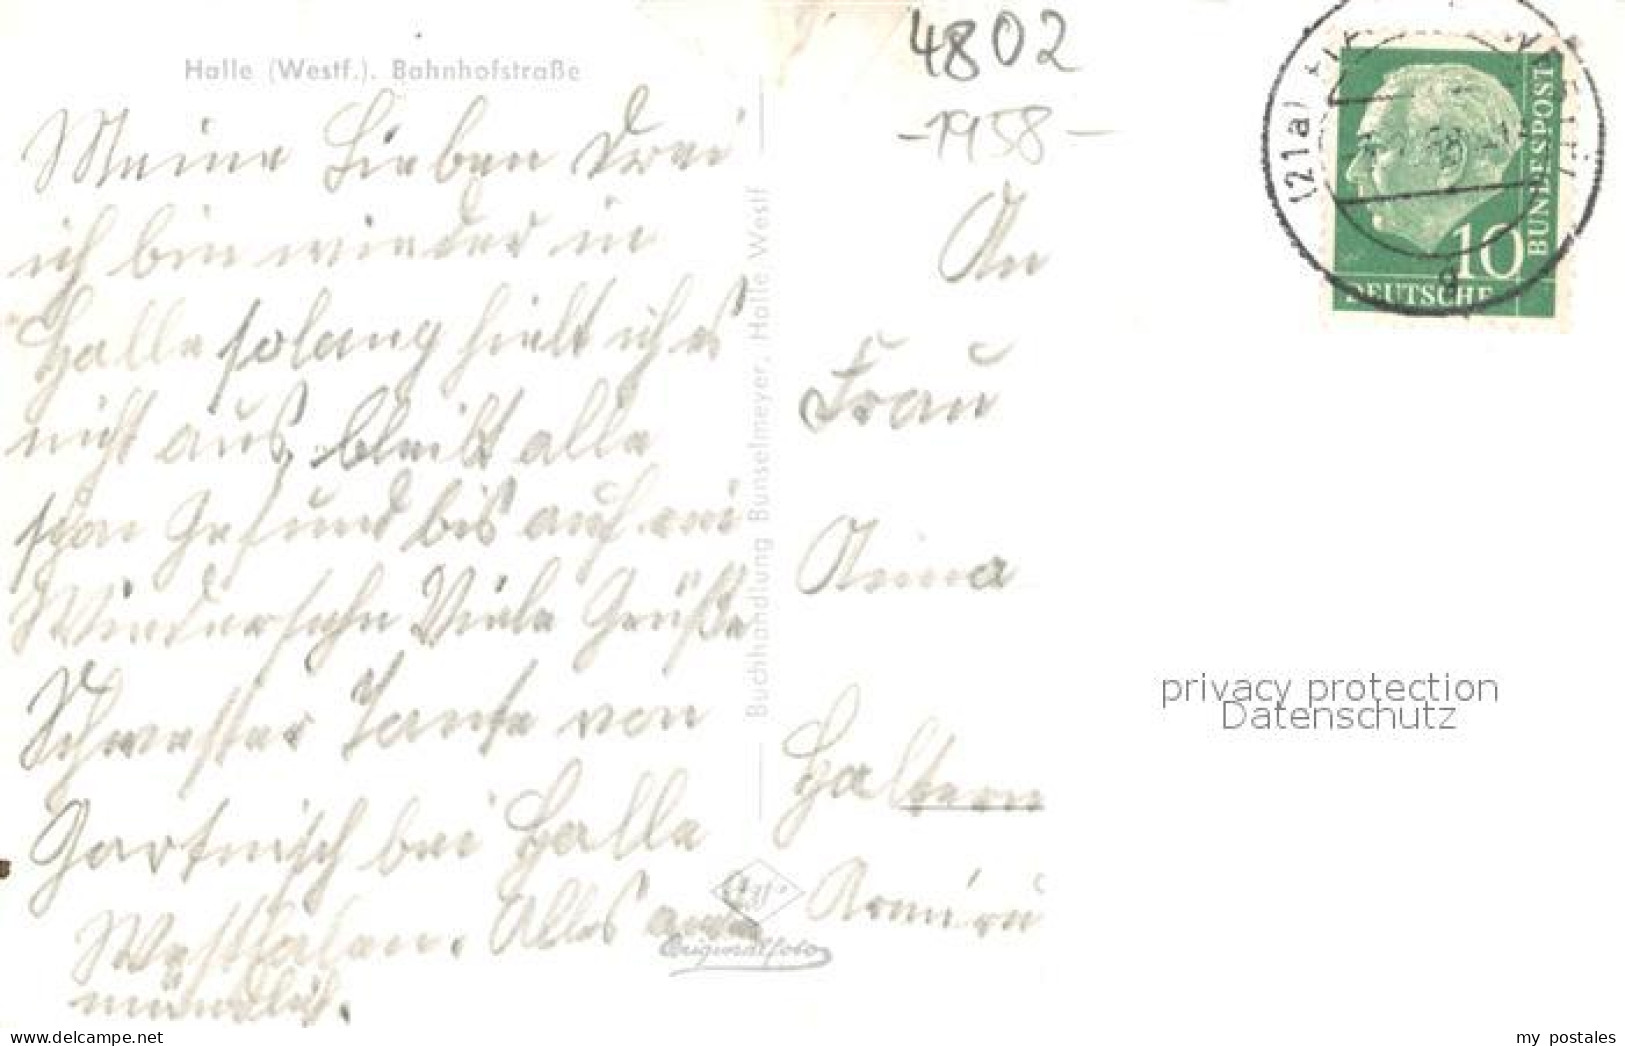 Halle (Westf.). Bahnhofstraße
4802
-1958-
Meine Lieben Drei
ich bin wieder in
Halle solang hielt ich es
nicht aus, bleibt alle
schön Gesund bis auf ein
Wiedersehn Viele Grüße
Schwester Tante von
Gartnisch bei Halle
Westfalen. Alles
mündlich.
Buchhandlung Bunselmeyer, Halle Westf
Agfa
Originalfoto
An
Frau
Anna
Haltern
(21a)
10
DEUTSCHE
BUNDESPOST
g
privacy protection
Datenschutz
delcampe.net
my_postales